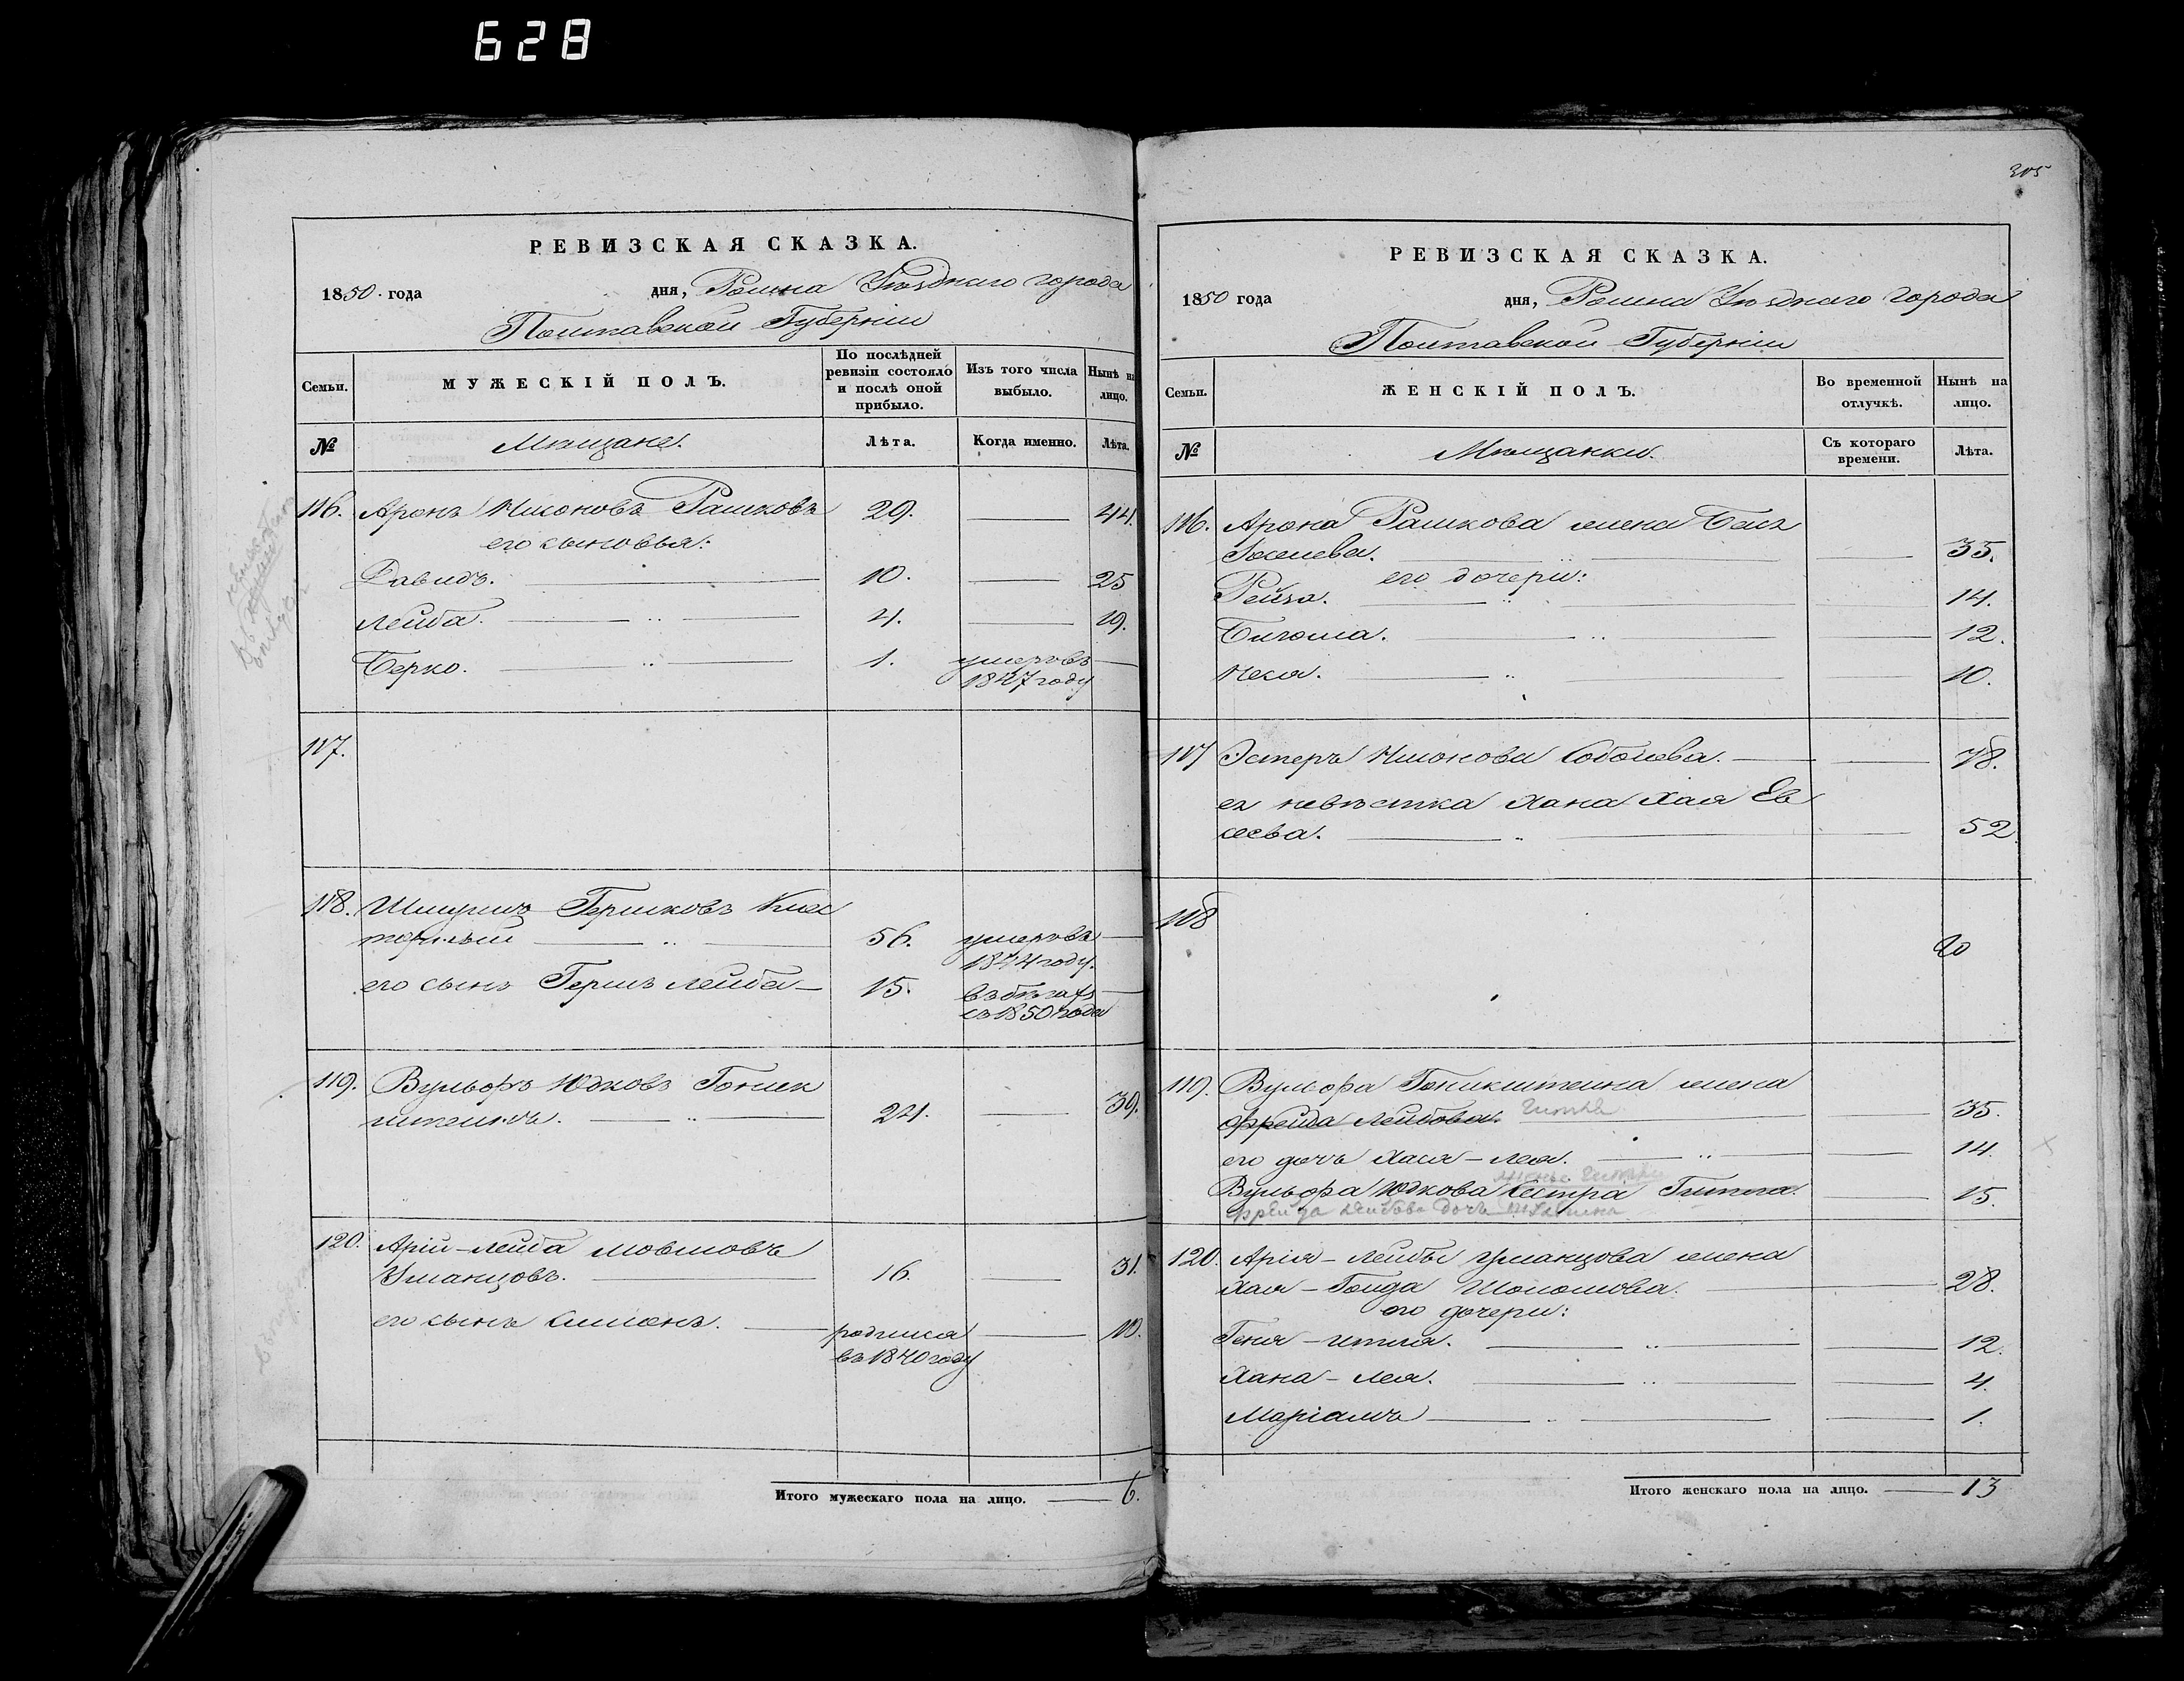 628
РЕВИЗСКАЯ СКАЗКА.
1850. года дня, Ромна Уѣзднаго города
Полтавской Губерніи
Семьи.
МУЖЕСКІЙ ПОЛЪ.
По послѣдней ревизіи состояло и послѣ оной прибыло.
Изъ того числа выбыло.
Нынѣ на лицо.
№
Мѣщане.
Лѣта.
Когда именно.
Лѣта.
116. Аронъ Нисоновъ Рашковъ 29. 44.
его сыновья:
Давидъ. 10. 25
Лейба. 4. 19.
Берко. 1. умеръ въ
1847 году
117.
118. Шмуиль Гершковъ
56. умеръ въ
1844 году.
его сынъ Гершъ Лейба 15. въ бѣгахъ
съ 1850 года
119. Вульфъ Юдковъ Гоник
штейнъ. 24. 39.
120. Арій-Лейба Мовшовъ
Уманцовъ. 16. 31.
его сынъ Симонъ. родился 10.
въ 1840 году
Итого мужескаго пола на лицо. 6.
305
РЕВИЗСКАЯ СКАЗКА.
1850 года дня, Ромна Уѣзднаго города
Полтавской Губерніи
Семьи.
ЖЕНСКІЙ ПОЛЪ.
Во временной отлучкѣ.
Нынѣ на лицо.
№
Мѣщанки.
Съ котораго времени.
Лѣта.
116. Арона Рашкова жена
35.
его дочери:
Рейза. 14.
12.
Неха. 10.
117 Эстеръ Нисонова Соболева. 78.
ея невѣстка Хана Хая Ев
сеева. 52
118
119. Вульфа Гоникштейна жена
Фрейда Лейбова. 35.
его дочь Хася-Лея. 14.
Вульфа Юдкова сестра 15.
120. Арія-Лейбы Уманцова жена
Хая-Гольда Шоломова. 28.
его дочери:
Геня-Итля. 12.
Хана-Лея. 4.
Маріамъ 1.
Итого женскаго пола на лицо. 13